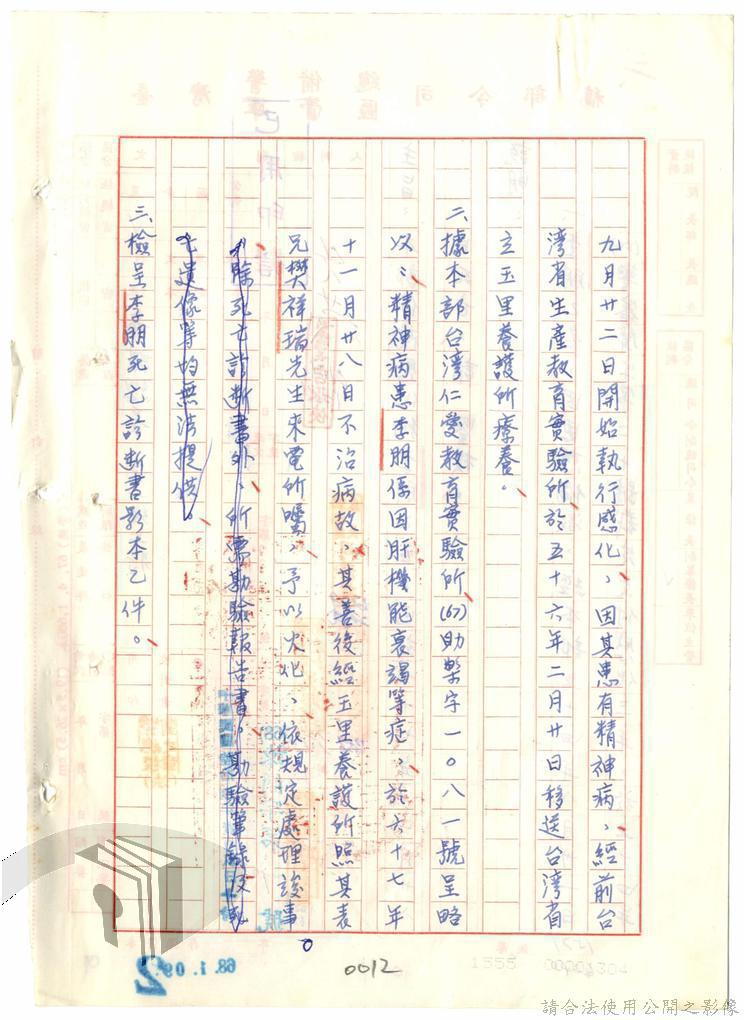 九月廿二日開始執行感化、因其患有精神病、經前台
湾省生產教育實驗所於五十六年二月廿日移送台湾省
立玉里養護所療養。
二、據本部台湾仁愛教育實驗所(67)助樂字一〇八一號呈略
以：精神病患李朋係因肝機能衰竭等症、於六十七年
十一月廿八日不治病故、其善後經玉里養護所照其表
兄樊祥瑞先生來電所囑、予以火化、依規定處理竣事。
除死亡診断書外、所需勘驗報告書。勘驗筆錄及
遺像等均無法提供。
三、檢呈李朋死亡診断書影本乙件。
0012
1555
68.1.09
2
已用印
請合法使用公開之影像